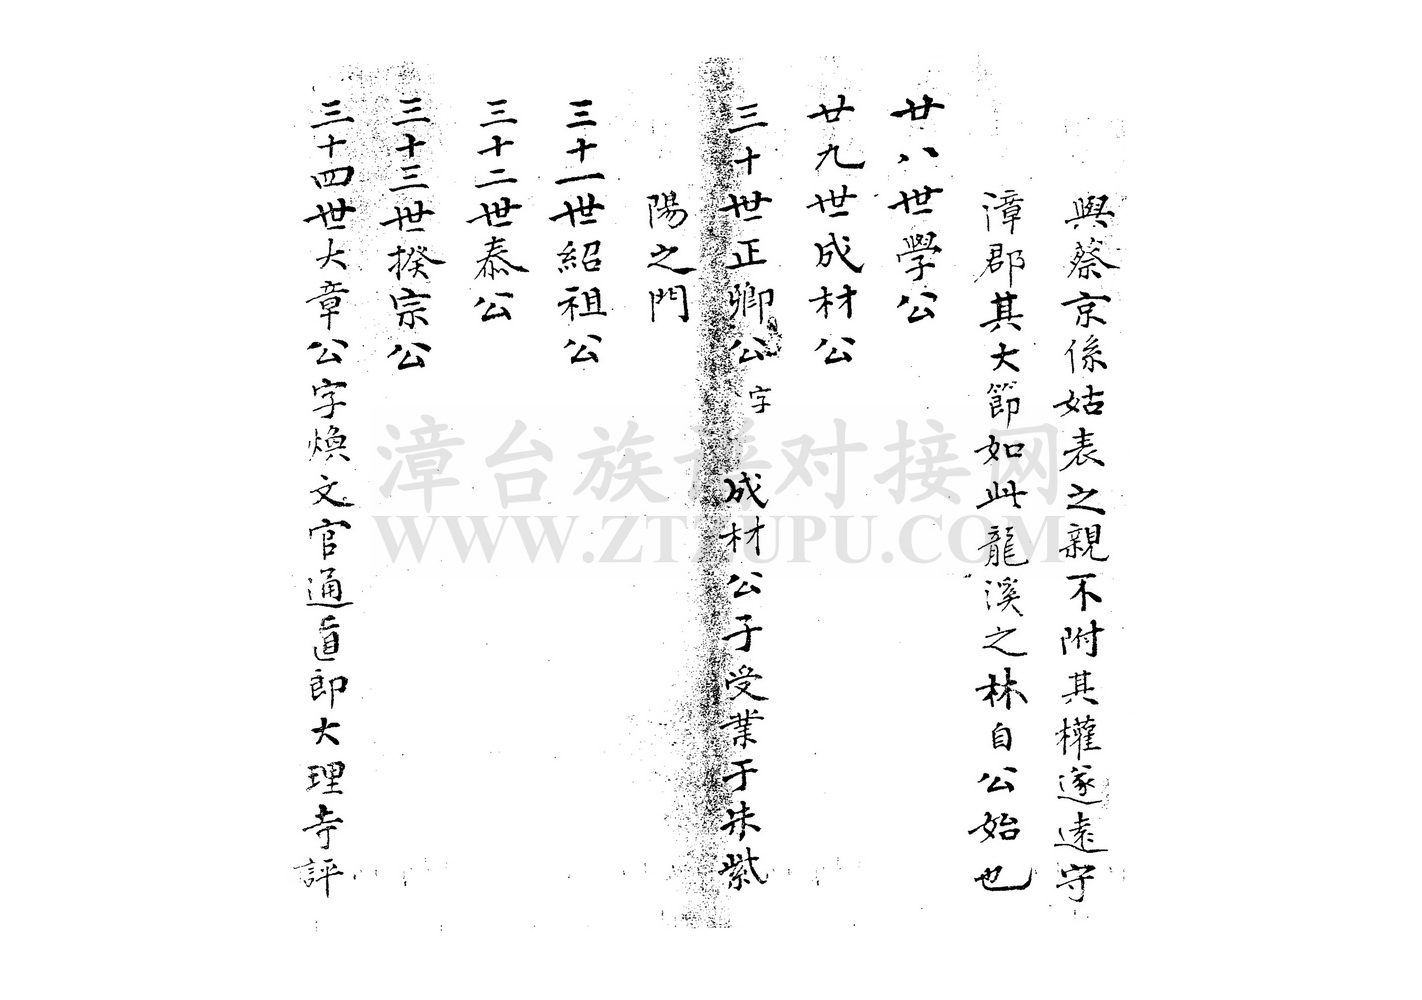 與蔡京係姑表之親不附其權遂遠守
漳郡其大節如此龍溪之林自公始也
廿八世學公
廿九世成材公
三十世正卿公字 成材公子受業于朱紫
陽之門
三十一世紹祖公
三十二世泰公
三十三世揆宗公
三十四世大章公字煥文官通直郎大理寺評
漳台族谱对接网
WWW.ZTZUPU.COM